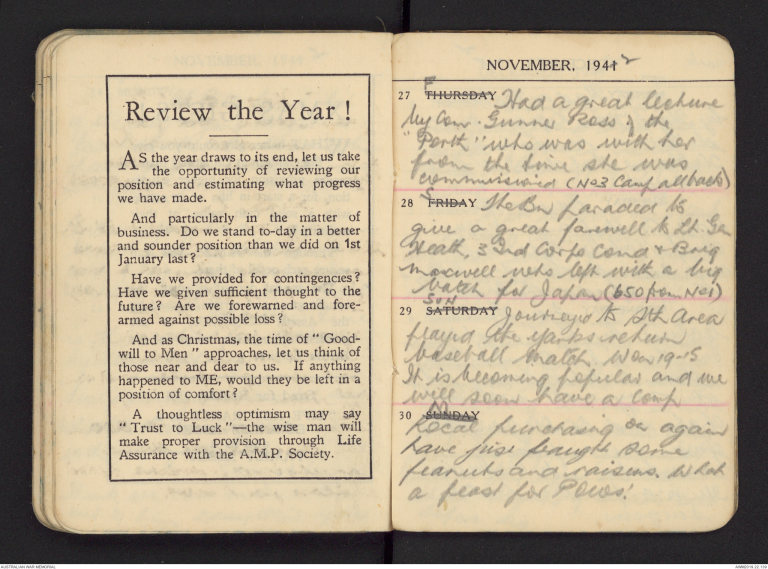 Review the Year!
AS the year draws to its end, let us take
the opportunity of reviewing our
position and estimating what progress
we have made.
And particularly in the matter of
business. Do we stand to-day in a better
and sounder position than we did on 1st
January last?
Have we provided for contingencies?
Have we given sufficient thought to the
future? Are we forewarned and fore-
armed against possible loss?
And as Christmas, the time of "Good-
will to Men" approaches, let us think of
those near and dear to us. If anything
happened to ME, would they be left in a
position of comfort?
A thoughtless optimism may say
"Trust to Luck"—the wise man will
make proper provision through Life
Assurance with the A.M.P. Society.
NOVEMBER, 1941 2
27 F THURSDAY Had a great lecture
by Com. Gunner Ross of the
"Perth" who was with her
from the time she was
commissioned (No3 Camp all back)
28 S FRIDAY The Bn paraded to
give a great farewell to Lt. Gen
Heath, 3 Ind Corps Comd & Brig
Maxwell who left with a big
batch for Japan (650 from No1)
29 SUN SATURDAY Journeyed to Sth Area
played the yanks return
baseball match Won 19-15
It is becoming popular and we
will soon have a comp
30 M SUNDAY
Local purchasing on again
have just bought some
peanuts and raisins. What
a feast for POWs!
AUSTRALIAN WAR MEMORIAL